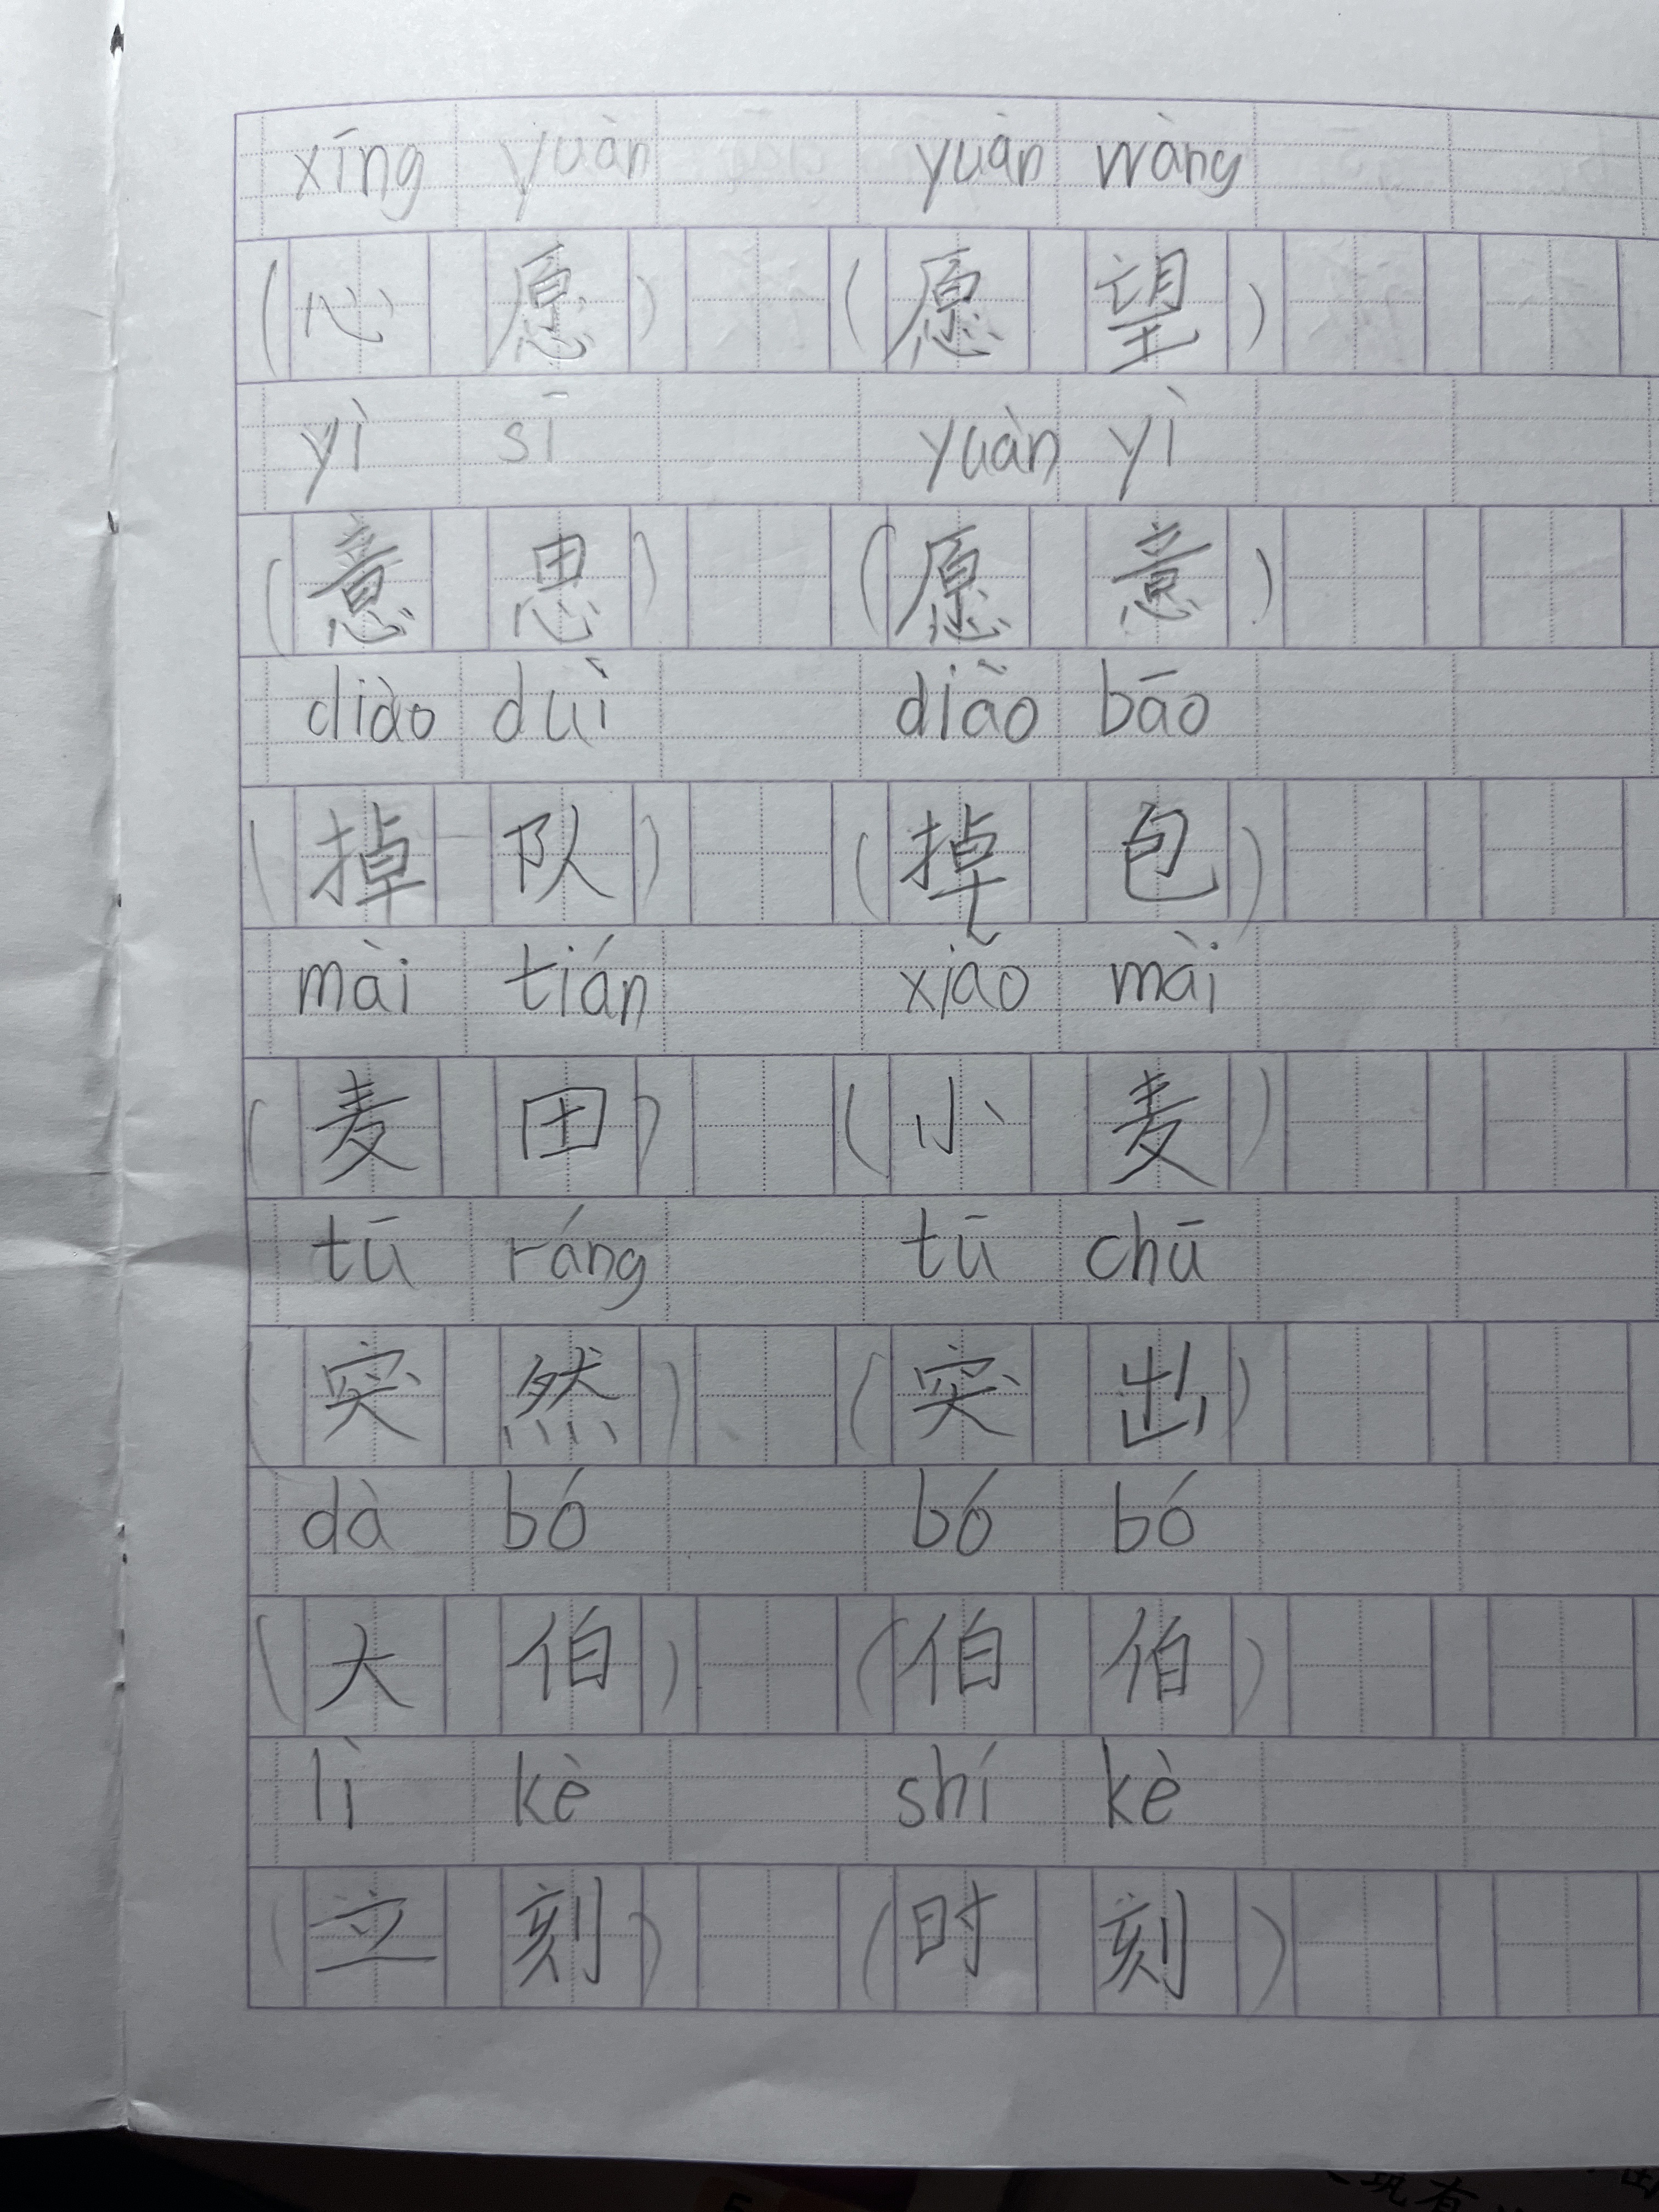 xīng yuàn yuàn wàng
(心愿) (愿望)
yì sī yuàn yì
(意思) (愿意)
diào duì diào bāo
(掉队) (掉包)
mài tián xiǎo mài
(麦田) (小麦)
tū ráng tū chū
(突然) (突出)
dà bó bó bó
(大伯) (伯伯)
lì kè shí kè
(立刻) (时刻)